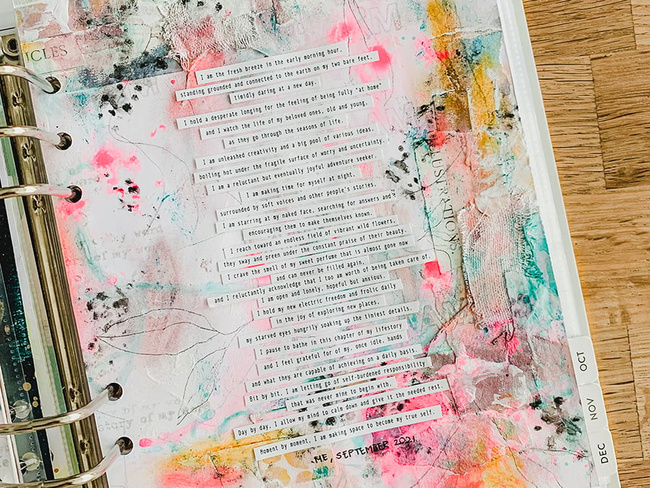 ICLES
I am the fresh breeze in the early morning hour,
standing grounded and connected to the earth on my two bare feet,
timidly daring at a new day.
I hold a desperate longing for the feeling of being fully "at home"
and I watch the life of my beloved ones, old and young,
as they go through the seasons of life.
I am unleashed creativity and a big pool of various ideas,
boiling hot under the fragile surface of worry and uncertainty.
I am a reluctant but eventually joyful adventure seeker.
I am making time for myself at night,
surrounded by soft voices and other people's stories.
I am starring at my naked face, searching for answers and
encouraging them to make themselves known.
I reach toward an endless field of vibrant wild flowers,
they sway and preen under the constant praise of their beauty.
I crave the smell of my sweet perfume that is almost gone now
and can never be filled again,
and I reluctantly acknowledge that I too am worth of being taken care of
I am open and lonely, hopeful but anxious
I hold my new electric freedom and frolic daily
in the joy of exploring new places,
my starved eyes hungrily soaking up the tiniest details.
I pause to bathe in this chapter of my lifestory
and I feel grateful for my, once idle, hands
and what they are capable of achieving on a daily basis.
Bit by bit, I am letting go of self-burdened responsibility
that was never mine to begin with.
Day by day, I allow my mind to calm down and give it the needed rest.
Moment by moment, I am making space to become my true self.
ME, SEPTEMBER 2021
OCT
NOV
DEC